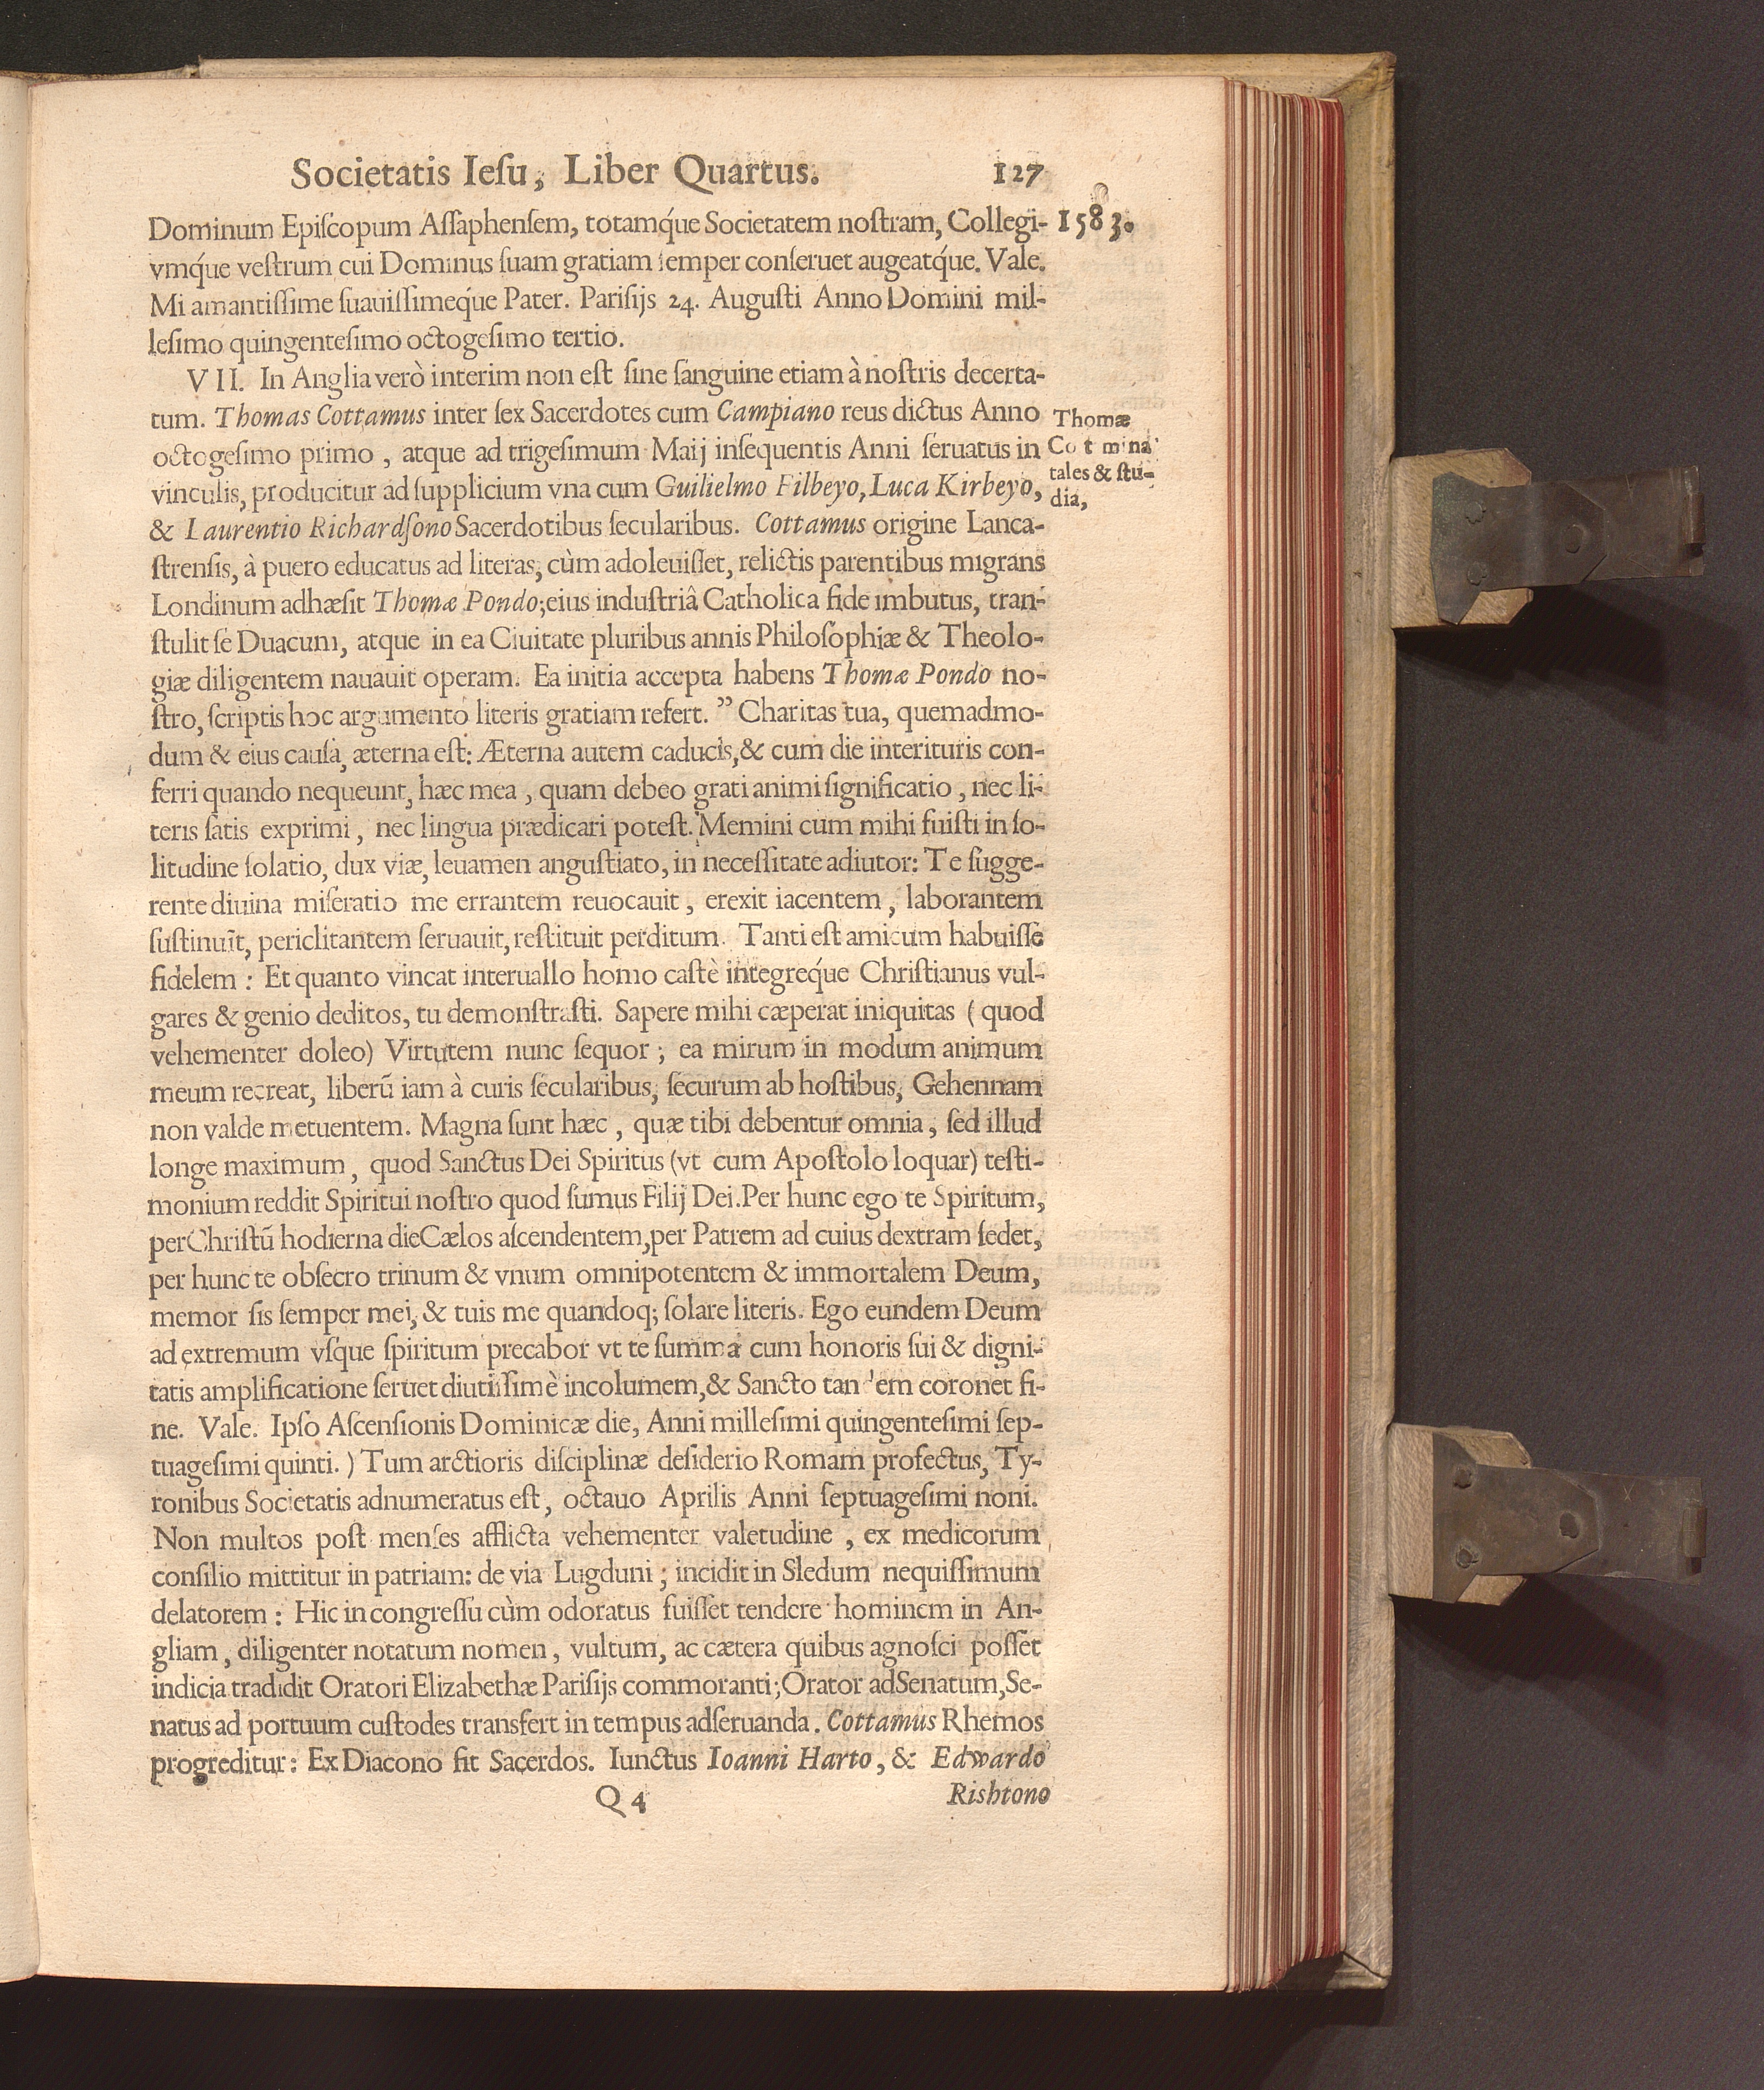 Societatis Ieſu, Liber Quartus. 127
Dominum Epiſcopum Aſſaphenſem, totamq́ue Societatem noſtram, Collegi-
1583.
vmq́ue veſtrum cui Dominus ſuam gratiam ſemper conſeruet augeatq́ue. Vale.
Mi amantiſſime ſuauiſſimeq́ue Pater. Pariſijs 24. Auguſti Anno Domini mil-
leſimo quingenteſimo octogeſimo tertio.
VII. In Anglia verò interim non eſt ſine ſanguine etiam à noſtris decerta-
tum. Thomas Cottamus inter ſex Sacerdotes cum Campiano reus dictus Anno
octogeſimo primo, atque ad trigeſimum Maij inſequentis Anni ſeruatus in
vinculis, producitur ad ſupplicium vna cum Guilielmo Filbeyo, Luca Kirbeyo,
Thomæ
Co t mi na
tales & ſtu-
dia,
& Laurentio Richardſono Sacerdotibus ſecularibus. Cottamus origine Lanca-
ſtrenſis, à puero educatus ad literas, cùm adoleuiſſet, relictis parentibus migrans
Londinum adhæſit Thomæ Pondo; eius induſtriâ Catholica fide imbutus, tran-
ſtulit ſe Duacum, atque in ea Ciuitate pluribus annis Philoſophiæ & Theolo-
giæ diligentem nauauit operam. Ea initia accepta habens Thomæ Pondo no-
ſtro, ſcriptis hoc argumento literis gratiam refert. ” Charitas tua, quemadmo-
dum & eius cauſa, æterna eſt: Æterna autem caducis, & cum die interituris con-
ferri quando nequeunt, hæc mea, quam debeo grati animi ſignificatio, nec li-
teris ſatis exprimi, nec lingua prædicari poteſt. Memini cum mihi fuiſti in ſo-
litudine ſolatio, dux viæ, leuamen anguſtiato, in neceſſitate adiutor: Te ſugge-
rente diuina miſeratio me errantem reuocauit, erexit iacentem, laborantem
ſuſtinuit, periclitantem ſeruauit, reſtituit perditum. Tanti eſt amicum habuiſſe
fidelem: Et quanto vincat interuallo homo caſtè integreq́ue Chriſtianus vul-
gares & genio deditos, tu demonſtraſti. Sapere mihi cæperat iniquitas (quod
vehementer doleo) Virtutem nunc ſequor; ea mirum in modum animum
meum recreat, liberū iam à curis ſecularibus, ſecurum ab hoſtibus, Gehennam
non valde metuentem. Magna ſunt hæc, quæ tibi debentur omnia, ſed illud
longe maximum, quod Sanctus Dei Spiritus (vt cum Apoſtolo loquar) teſti-
monium reddit Spiritui noſtro quod ſumus Filij Dei. Per hunc ego te Spiritum,
per Chriſtū hodierna die Cælos aſcendentem, per Patrem ad cuius dextram ſedet,
per hunc te obſecro trinum & vnum omnipotentem & immortalem Deum,
memor ſis ſemper mei, & tuis me quandoq; ſolare literis. Ego eundem Deum
ad extremum vſque ſpiritum precabor vt te ſumma cum honoris ſui & digni-
tatis amplificatione ſeruet diutiſſimè incolumem, & Sancto tan 'em coronet fi-
ne. Vale. Ipſo Aſcenſionis Dominicæ die, Anni milleſimi quingenteſimi ſep-
tuageſimi quinti.) Tum arctioris diſciplinæ deſiderio Romam profectus, Ty-
ronibus Societatis adnumeratus eſt, octauo Aprilis Anni ſeptuageſimi noni.
Non multos poſt menſes afflicta vehementer valetudine, ex medicorum
conſilio mittitur in patriam: de via Lugduni; incidit in Sledum nequiſſimum
delatorem: Hic in congreſſu cùm odoratus fuiſſet tendere hominem in An-
gliam, diligenter notatum nomen, vultum, ac cætera quibus agnoſci poſſet
indicia tradidit Oratori Elizabethæ Pariſijs commoranti; Orator ad Senatum, Se-
natus ad portuum cuſtodes transfert in tempus adſeruanda. Cottamus Rhemos
progreditur: Ex Diacono fit Sacerdos. Iunctus Ioanni Harto, & Edwardo
Q 4 Rishtono